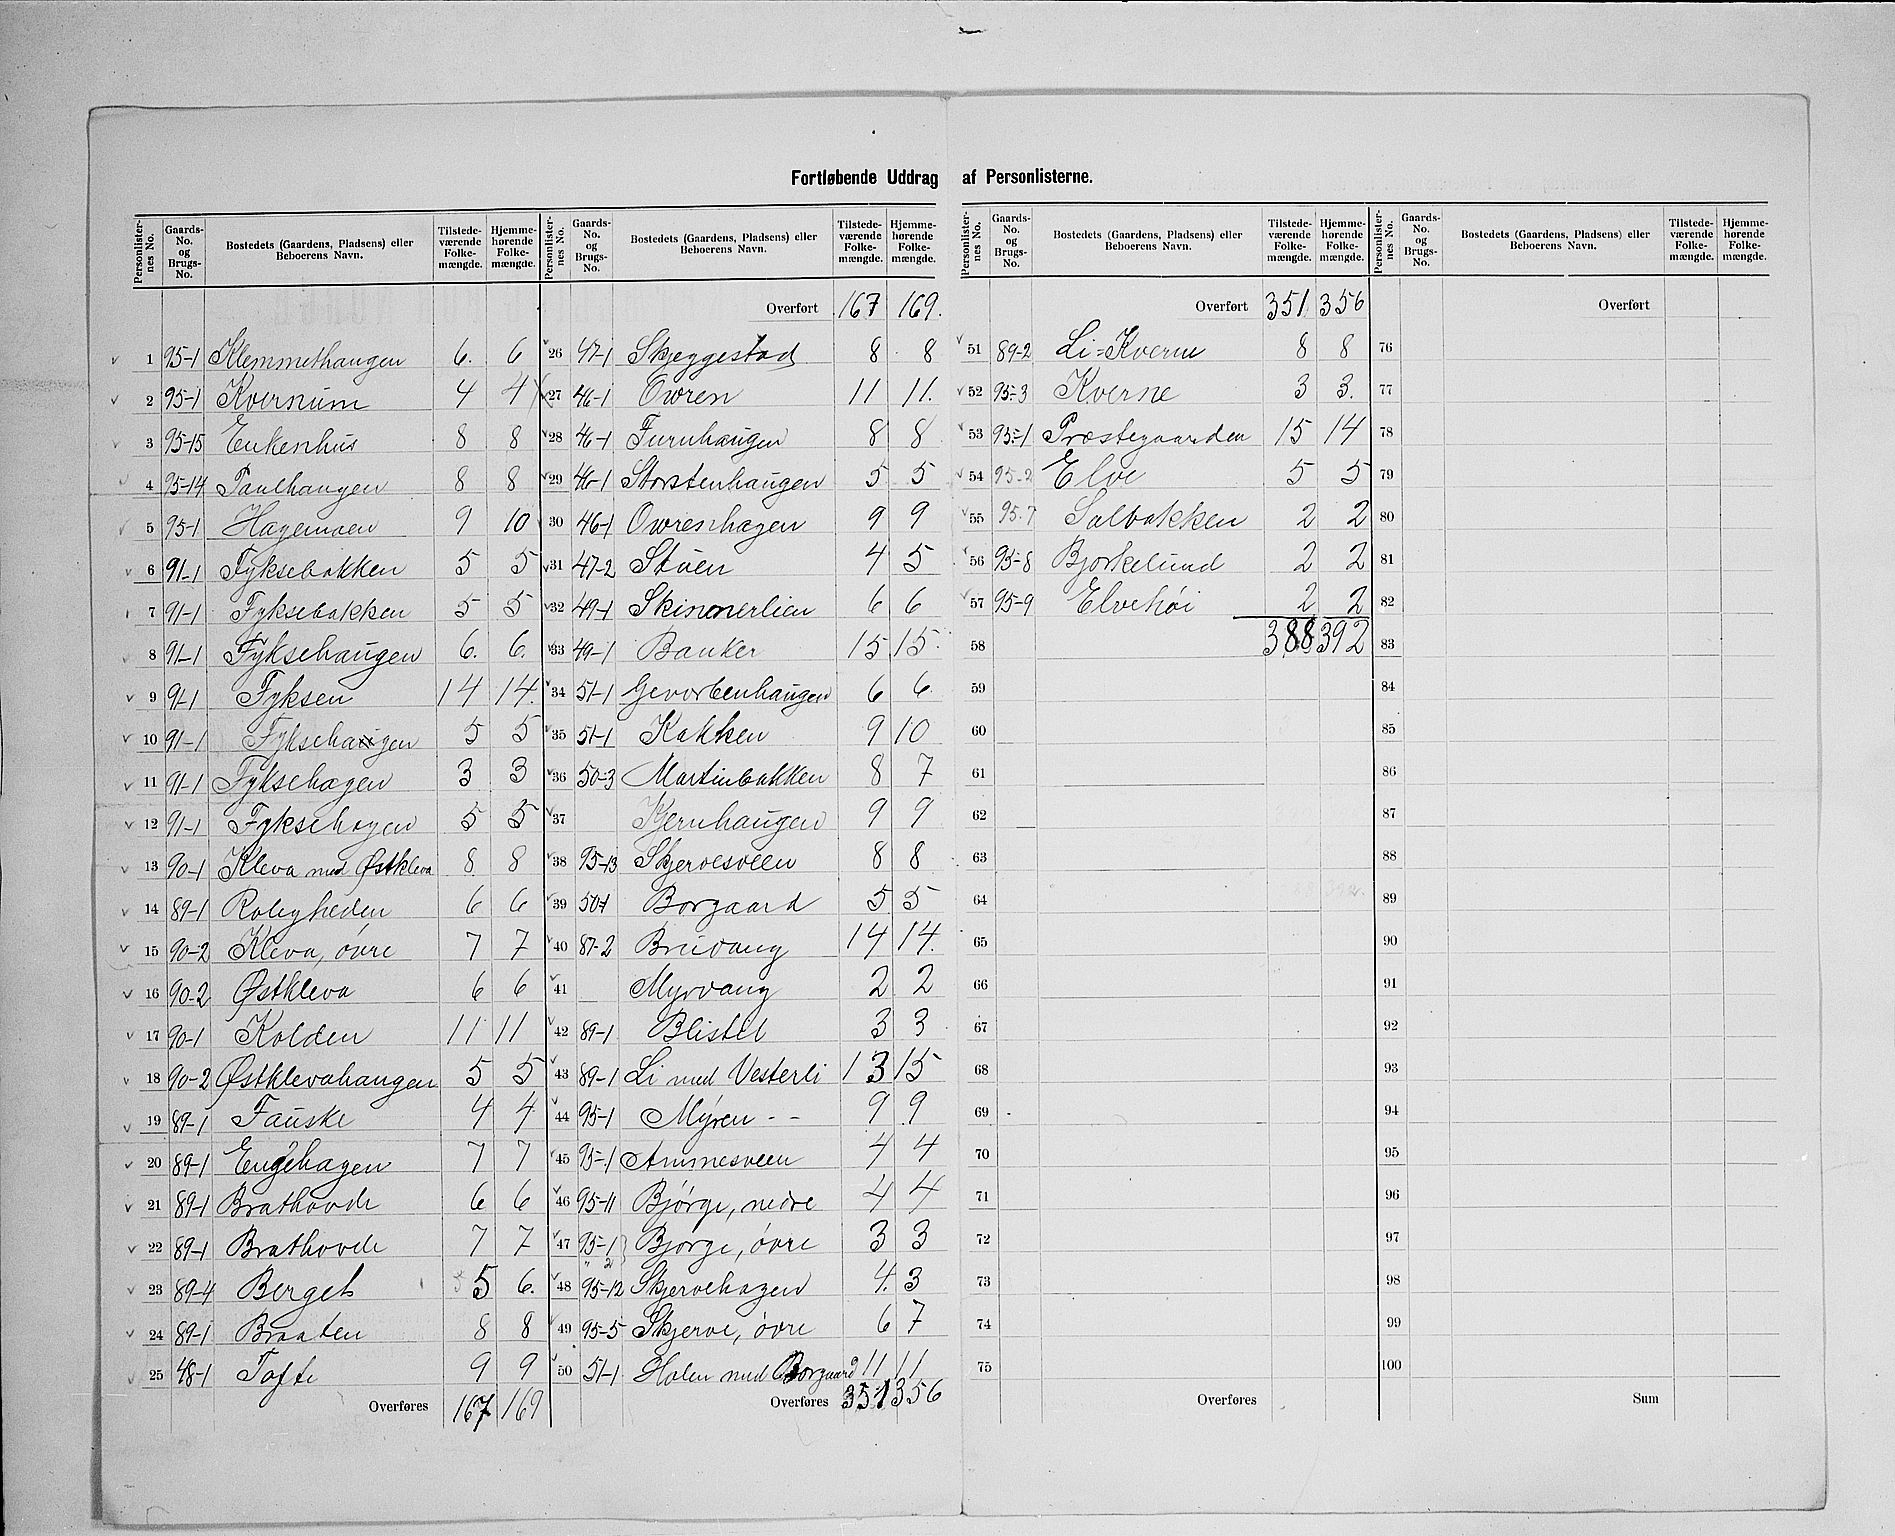 Fortløbende Uddrag af Personlisterne.
Personlisternes No. | Gaards-No. og Brugs-No. | Bostedets (Gaardens, Pladsens) eller Beboerens Navn. | Tilstedeværende Folkemængde. | Hjemmehørende Folkemængde.
1 95-1 Klemmethaugen 6. 6
2 95-1 Kvernum 4 4
3 95-15 Enkenhus 8 8
4 95-14 Paulhaugen 8 8
5 95-1 Hagemoen 9 10
6 91-1 Fyksebakken 5 5
7 91-1 Fyksebakken 5 5
8 91-1 Fyksehaugen 6. 6.
9 91-1 Fyksen 14 14.
10 91-1 Fyksehagen 5 5
11 91-1 Fyksehagen 3 3
12 91-1 Fyksehagen 5 5
13 90-1 Kleva med Østkleva 8 8
14 89-1 Roligheden 6 6
15 90-2 Kleva, övre 7 7
16 90-2 Østkleva 6 6
17 90-1 Kolden 11 11
18 90-2 Østklevahaugen 5 5
19 89-1 Fauske 4 4
20 89-1 Engehagen 7 7
21 89-1 Brathovde 6 6
22 89-1 Brathovde 7 7
23 89-4 Berget 5 6.
24 89-1 Braaten 8 8
25 48-1 Tofte 9 9
Overføres 167 169
Personlisternes No. | Gaards-No. og Brugs-No. | Bostedets (Gaardens, Pladsens) eller Beboerens Navn. | Tilstedeværende Folkemængde. | Hjemmehørende Folkemængde.
Overført 167 169.
26 47-1 Skjeggestad 8 8
27 46-1 Ovren 11 11.
28 46-1 Furuhaugen 8 8
29 46-1 Storstenhaugen 5 5
30 46-1 Ovrenhagen 9 9
31 47-2 Stuen 4 5
32 49-1 Skinnerlien 6 6
33 49-1 Banker 15 15.
34 51-1 Gevorbenhaugen 6 6.
35 51-1 Kakken 9 10
36 50-3 Martinbakken 8 7
37 Kjernhaugen 9 9
38 95-13 Skjervesveen 8 8
39 50-1 Borgaard 5 5
40 87-2 Bruvang 14 14.
41 Myrvang 2 2
42 89-1 Blistel 3 3
43 89-1 Li med Vesterli 13 15
44 95-1 Myren - - 9 9
45 95-1 Ammesveen 4 4
46 95-11 Bjørge, nedre 4 4
47 95-1 Bjørge, övre 3 3
" 2
48 95-12 Skjervehagen 4. 3
49 95-5 Skjerve, övre 6 7
50 51-1 Holen med Borgaard 11 11
Overføres 351 356
Personlisternes No. | Gaards-No. og Brugs-No. | Bostedets (Gaardens, Pladsens) eller Beboerens Navn. | Tilstedeværende Folkemængde. | Hjemmehørende Folkemængde.
Overført 351 356
51 89-2 Li=Kverne 8 8
52 95-3 Kverne 3 3.
53 95-1 Prestegaarden 15 14
54 95-2 Elve 5 5
55 95-7 Solbakken 2 2
56 95-8 Bjørkelund 2 2
57 95-9 Elvehöi 2 2
58 388 392
59
60
61
62
63
64
65
66
67
68
69
70
71
72
73
74
75
Overføres
Personlisternes No. | Gaards-No. og Brugs-No. | Bostedets (Gaardens, Pladsens) eller Beboerens Navn. | Tilstedeværende Folkemængde. | Hjemmehørende Folkemængde.
Overført
76
77
78
79
80
81
82
83
84
85
86
87
88
89
90
91
92
93
94
95
96
97
98
99
100
Sum